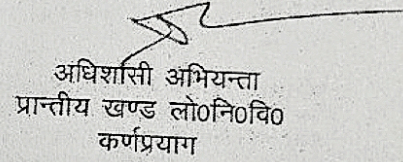 अधिशासी अभियन्ता
प्रान्तीय खण्ड लो0नि0वि0
कर्णप्रयाग